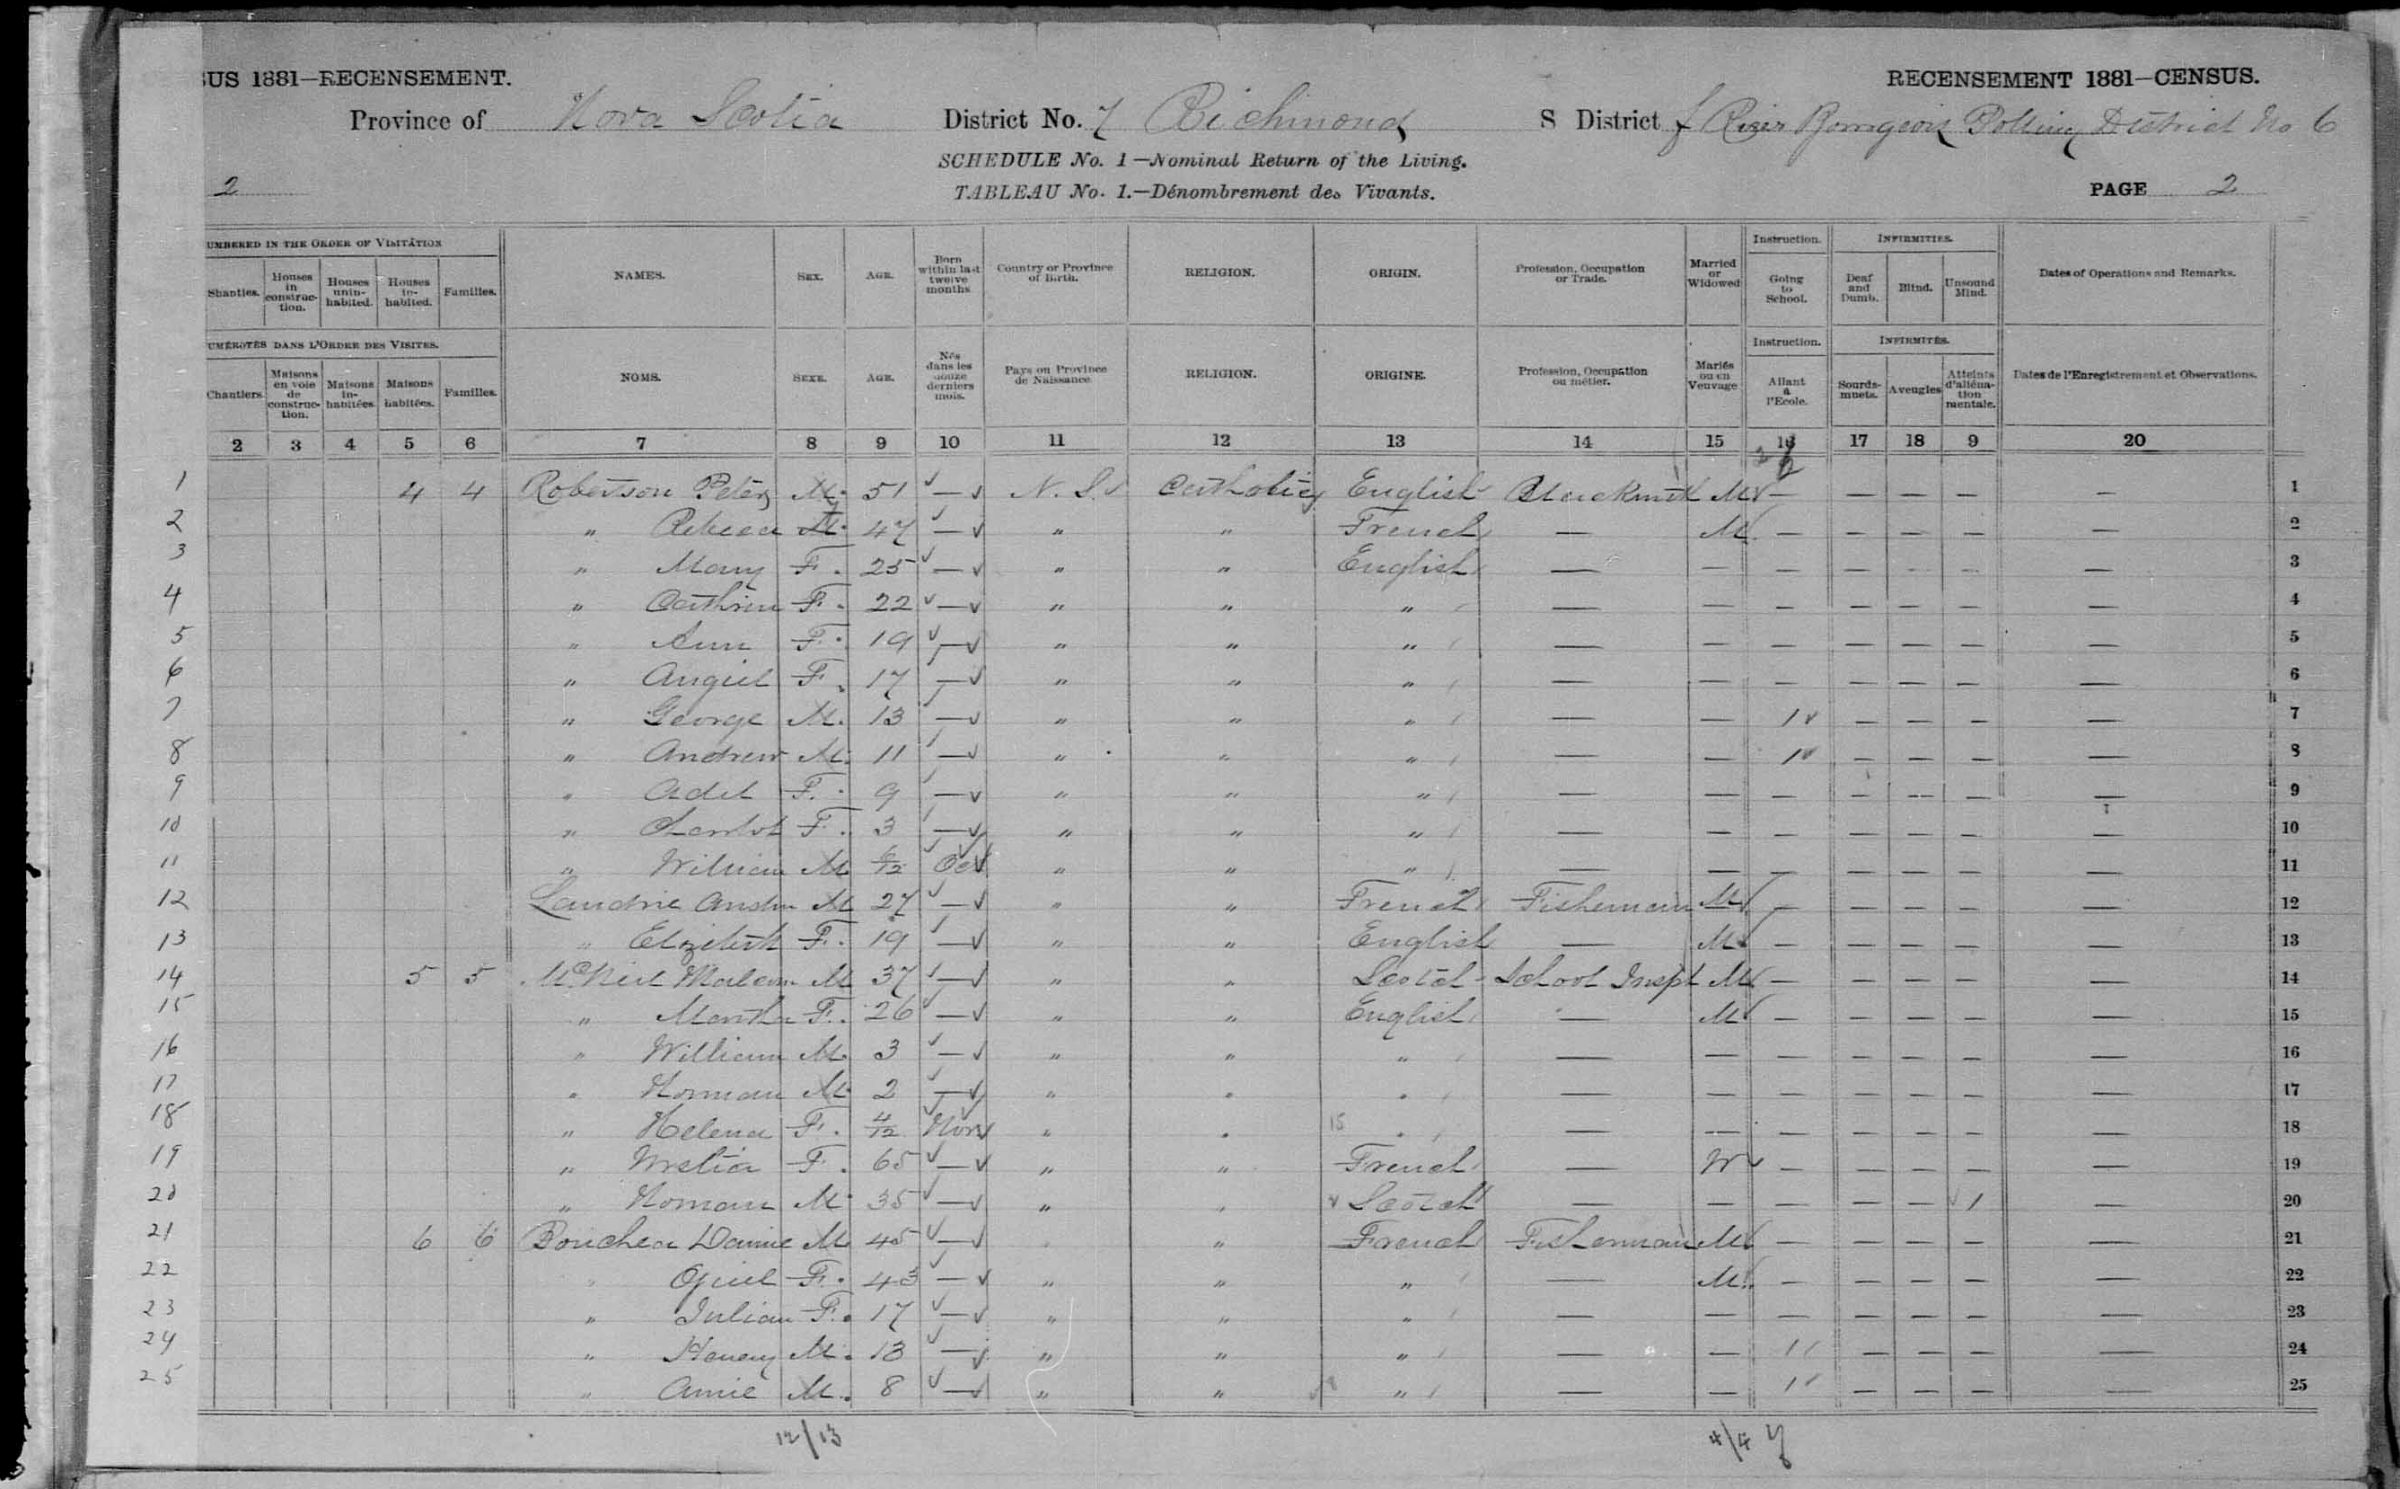 SUS 1881—RECENSEMENT.
RECENSEMENT 1881—CENSUS.
Province of Nova Scotia District No. 7 Richmond S District f River Bourgeois Polling District No 6
SCHEDULE No. 1—Nominal Return of the Living.
TABLEAU No. 1.—Dénombrement des Vivants.
2 PAGE 2
UMBERED IN THE ORDER OF VISITATION
Shanties. Houses in construction. Houses uninhabited. Houses inhabited. Families. NAMES. SEX. AGE. Born within last twelve months Country or Province of Birth. RELIGION. ORIGIN. Profession, Occupation or Trade. Married or Widowed Instruction. Going to School. INFIRMITIES. Deaf and Dumb. Blind. Unsound Mind. Dates of Operations and Remarks.
UMÉROTÉS DANS L'ORDER DES VISITES.
Chantiers. Maisons en voie de construction. Maisons inhabitées Maisons habitées. Familles. NOMS. SEXE. AGE. Nés dans les douze derniers mois. Pays ou Province de Naissance. RELIGION. ORIGINE. Profession, Occupation ou métier. Mariés ou en Veuvage Instruction. Allant à l'Ecole. INFIRMITÉS. Sourds-muets. Aveugles Atteints d'aliénation mentale. Dates de l'Enregistrement et Observations.
2 3 4 5 6 7 8 9 10 11 12 13 14 15 16 17 18 9 20
1 4 4 Robertson Peter M. 51 — N. S. Catholic English Blacksmith M — — — — — 1
2 " Rebecca M. 47 — " " French — M — — — — — 2
3 " Mary F. 25 — " " English — — — — — — — 3
4 " Cathrin F. 22 — " " " — — — — — — — 4
5 " Ann F. 19 — " " " — — — — — — — 5
6 " Angiel F. 17 — " " " — — — — — — — 6
7 " George M. 13 — " " " — — 1 — — — — 7
8 " Andrew M. 11 — " " " — — 1 — — — — 8
9 " Adel F. 9 — " " " — — — — — — — 9
10 " F. 3 — " " " — — — — — — — 10
11 " William M 6/12 Oct " " " — — — — — — — 11
12 Landrie M 27 — " " French Fisherman M — — — — — 12
13 " Elizebeth F. 19 — " " English — M — — — — — 13
14 5 5 McNeil Malcom M 37 — " " Scotch School Inspt M — — — — — 14
15 " Martha F. 26 — " " English — M — — — — — 15
16 " William M. 3 — " " " — — — — — — — 16
17 " Norman M. 2 — " " " — — — — — — — 17
18 " Helena F. 4/12 Nov " " 15 " — — — — — — — 18
19 " F. 65 — " " French — W — — — — — 19
20 " Norman M 35 — " " Scotch — — — — — 1 — 20
21 6 6 Bouchea M 45 — " French Fisherman M — — — — — 21
22 " F. 43 — " " " — M — — — — — 22
23 " Julian F. 17 — " " " — — — — — — — 23
24 " Henery M. 13 — " " " — — 1 — — — — 24
25 " Amie M. 8 — " " " — — 1 — — — — 25
12/13 4/4